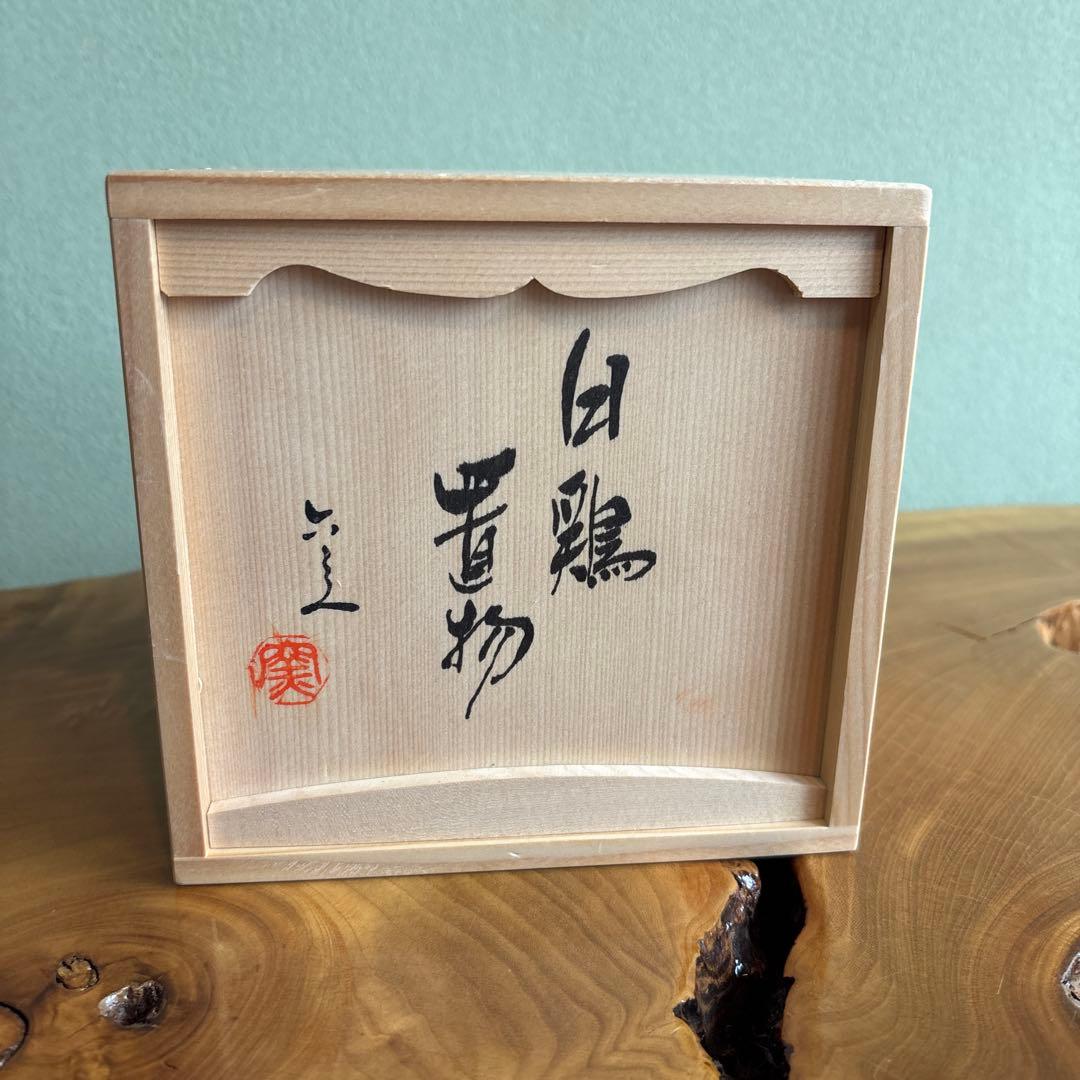 白鶏
置物